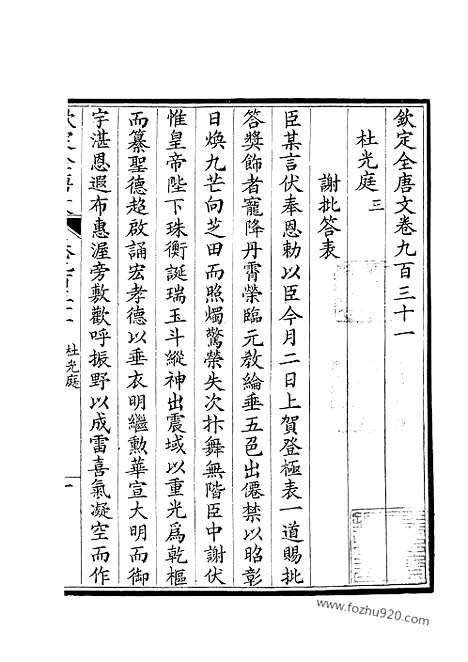 欽定全唐文卷九百三十一
杜光庭 三
謝批答表
臣某言伏奉恩勅以臣今月二日上賀登極表一道賜批
答獎飾者寵降丹霄榮臨元教綸垂五色出僊禁以昭彰
日煥九芒向芝田而照燭驚榮失次抃舞無階臣中謝伏
惟皇帝陛下珠衡誕瑞玉斗縱神出震域以重光爲乾樞
而纂聖德超啟誦宏孝德以垂衣明繼勲華宣大明而御
宇湛恩遐布惠渥旁敷歡呼振野以成雷喜氣凝空而作
杜光庭
一
www.fozhu920.com